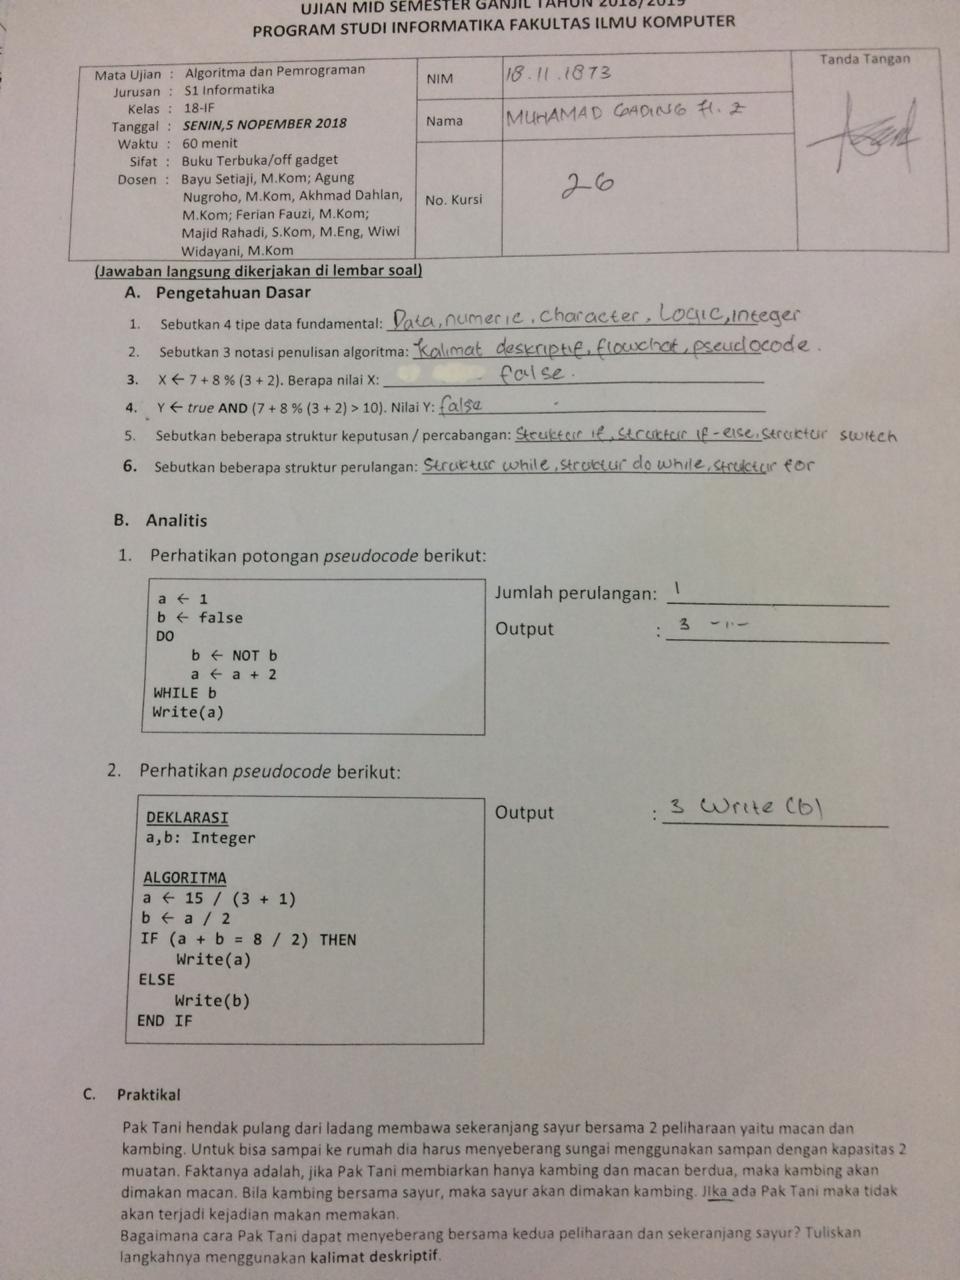 UJIAN MID SEMESTER GANJIL TAHUN 2018/2019
PROGRAM STUDI INFORMATIKA FAKULTAS ILMU KOMPUTER
Mata Ujian : Algoritma dan Pemrograman
Jurusan : S1 Informatika
Kelas : 18-IF
Tanggal : SENIN,5 NOPEMBER 2018
Waktu : 60 menit
Sifat : Buku Terbuka/off gadget
Dosen : Bayu Setiaji, M.Kom; Agung
Nugroho, M.Kom, Akhmad Dahlan,
M.Kom; Ferian Fauzi, M.Kom;
Majid Rahadi, S.Kom, M.Eng, Wiwi
Widayani, M.Kom
NIM 18.11.1873
Nama MUHAMAD GADING H. Z
No. Kursi 26
Tanda Tangan
(Jawaban langsung dikerjakan di lembar soal)
A. Pengetahuan Dasar
1. Sebutkan 4 tipe data fundamental: Data, numeric, character, Logic, integer
2. Sebutkan 3 notasi penulisan algoritma: Kalimat deskriptif, flowchat, pseudocode.
3. X ← 7 + 8 % (3 + 2). Berapa nilai X: false.
4. Y ← true AND (7 + 8 % (3 + 2) > 10). Nilai Y: false
5. Sebutkan beberapa struktur keputusan / percabangan: Struktur if, struktur if-else, struktur switch
6. Sebutkan beberapa struktur perulangan: Struktur while, struktur do while, struktur for
B. Analitis
1. Perhatikan potongan pseudocode berikut:
a ← 1
b ← false
DO
b ← NOT b
a ← a + 2
WHILE b
Write(a)
Jumlah perulangan: 1
Output : 3 -"-
2. Perhatikan pseudocode berikut:
DEKLARASI
a,b: Integer
ALGORITMA
a ← 15 / (3 + 1)
b ← a / 2
IF (a + b = 8 / 2) THEN
Write(a)
ELSE
Write(b)
END IF
Output : 3 Write (b)
C. Praktikal
Pak Tani hendak pulang dari ladang membawa sekeranjang sayur bersama 2 peliharaan yaitu macan dan
kambing. Untuk bisa sampai ke rumah dia harus menyeberang sungai menggunakan sampan dengan kapasitas 2
muatan. Faktanya adalah, jika Pak Tani membiarkan hanya kambing dan macan berdua, maka kambing akan
dimakan macan. Bila kambing bersama sayur, maka sayur akan dimakan kambing. JIka ada Pak Tani maka tidak
akan terjadi kejadian makan memakan.
Bagaimana cara Pak Tani dapat menyeberang bersama kedua peliharaan dan sekeranjang sayur? Tuliskan
langkahnya menggunakan kalimat deskriptif.